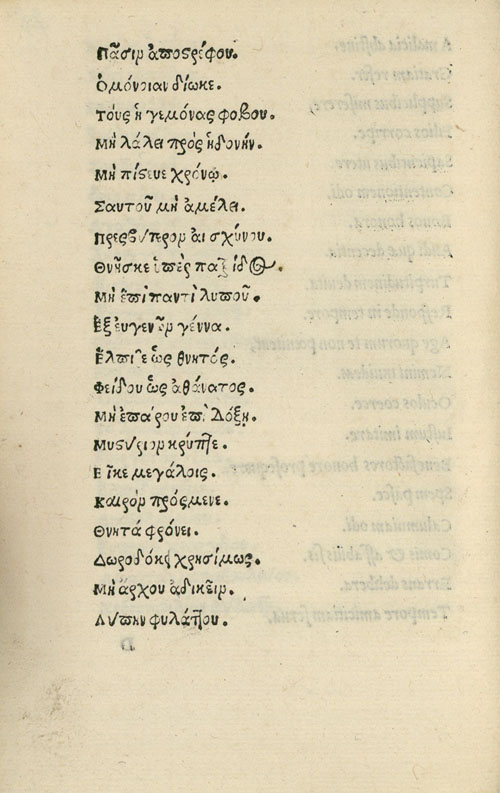 Πᾶσιν ἀποστρέφου.
Ὁμόνοιαν δίωκε.
Τοὺς ἡγεμόνας φοβου.
Μὴ λάλει πρὸς ἡδονήν.
Μὴ πίστευε χρόνῳ.
Σαυτοῦ μὴ ἀμέλει.
Πρεσβύτερον αἰσχύνου.
Θνῆσκε ὑπὲρ πατρίδος.
Μὴ ἐπὶ παντὶ λυποῦ.
Ἐξ εὐγενῶν γέννα.
Ἔλπιζε ὡς θνητός.
Φείδου ὡς ἀθάνατος.
Μὴ ἐπαίρου ἐπὶ Δόξῃ.
Μυστήριον κρύπτε.
Εἶκε μεγάλοις.
Καιρὸν πρόσμενε.
Θνητά φρόνει.
Δωροδόκει χρησίμως.
Μὴ ἄρχου ἀδικεῖν.
Λύπην φυλάττου.